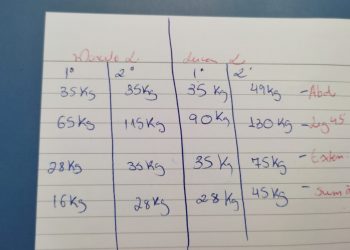 1º 2º 1º 2º
35Kg 35Kg 35Kg 49Kg - Abd
65Kg 115Kg 90Kg 130Kg - Leg 45
28Kg 35Kg 35Kg 75Kg - Exten
16Kg 28Kg 28Kg 45Kg